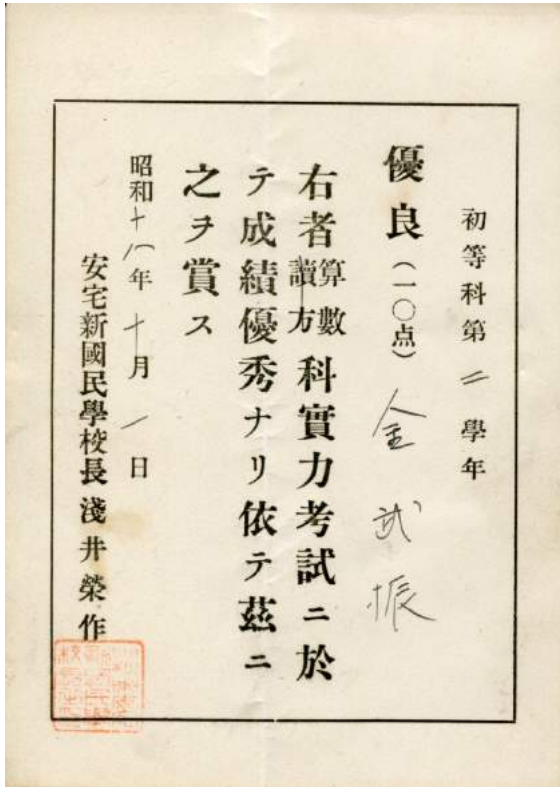 初等科第二學年
優良(一〇点) 金武振
右者算數讀方科實力考試ニ於
テ成績優秀ナリ依テ茲ニ
之ヲ賞ス
昭和十八年十月一日
安宅新國民學校長淺井榮作